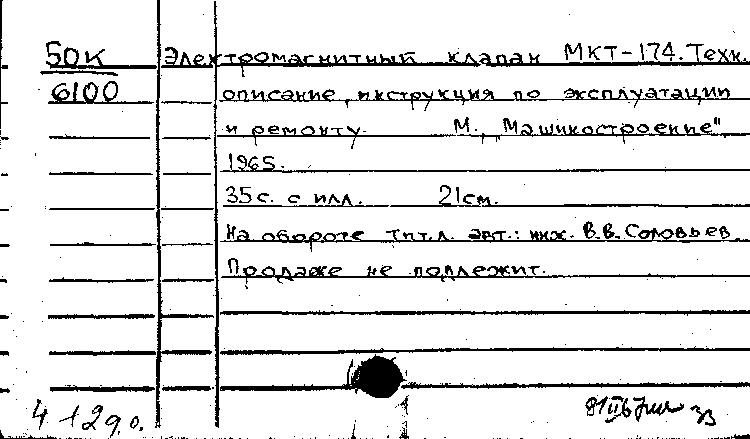 50К Электромагнитный клапан МКТ-174. Техн.
6100 описание, инструкция по эксплуатации
и ремонту. М., "Машиностроение"
1965.
35 с. с илл. 21 см.
На обороте тит.л. авт.: инж. В.В. Соловьев
Продаже не подлежит.